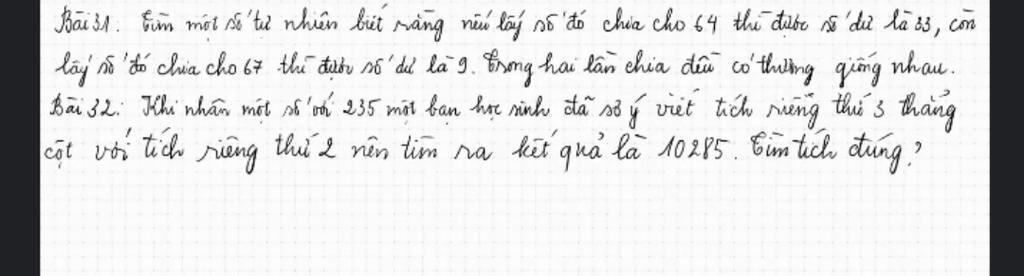 Bài 31. Tìm một số tự nhiên biết rằng nếu lấy số đó chia cho 64 thì được số dư là 33, còn
lấy số đó chia cho 67 thì được số dư là 9. Trong hai lần chia đều có thương giống nhau.
Bài 32: Khi nhân một số với 235 một bạn học sinh đã sơ ý viết tích riêng thứ 3 thẳng
cột với tích riêng thứ 2 nên tìm ra kết quả là 10285. Tìm tích đúng?